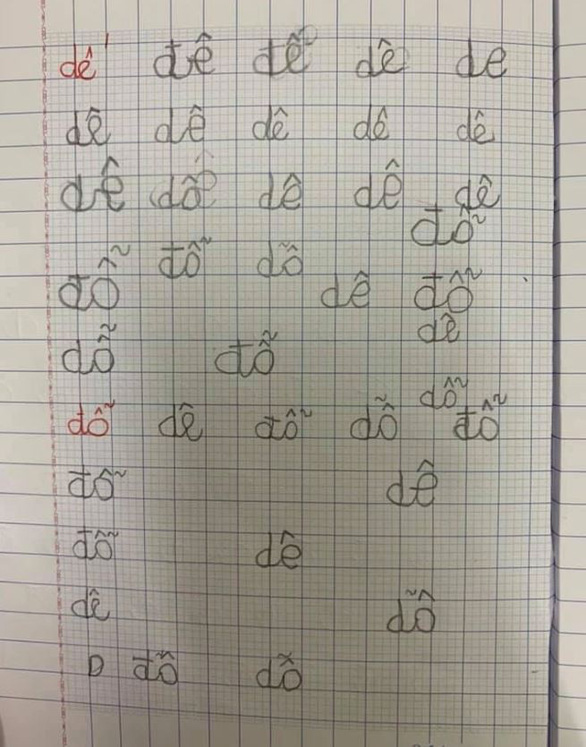 dế đê đễ dê de
dê dê dê dê dê
dê dỗ dê dê dê
đỗ
đỗ đỗ dỗ
dê đỗ
dê
dỗ đỗ
dỗ
dỗ dê đỗ dỗ đỗ
đỗ dê
đỗ dê
dê dỗ
D đỗ dỗ